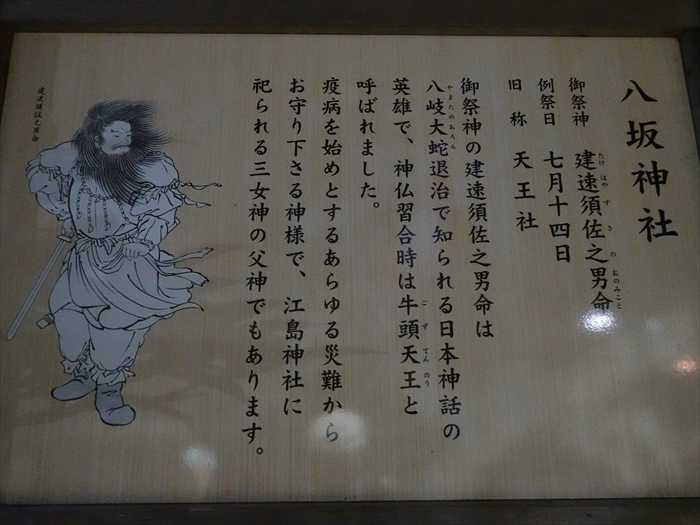 八坂神社
御祭神　建速須佐之男命
たけはやすさのおのみこと
例祭日　七月十四日
旧称　天王社
御祭神の建速須佐之男命は
八岐大蛇退治で知られる日本神話の
やまたのおろち
英雄で、神仏習合時は牛頭天王と
ごずてんのう
呼ばれました。
疫病を始めとするあらゆる災難から
お守り下さる神様で、江島神社に
祀られる三女神の父神でもあります。